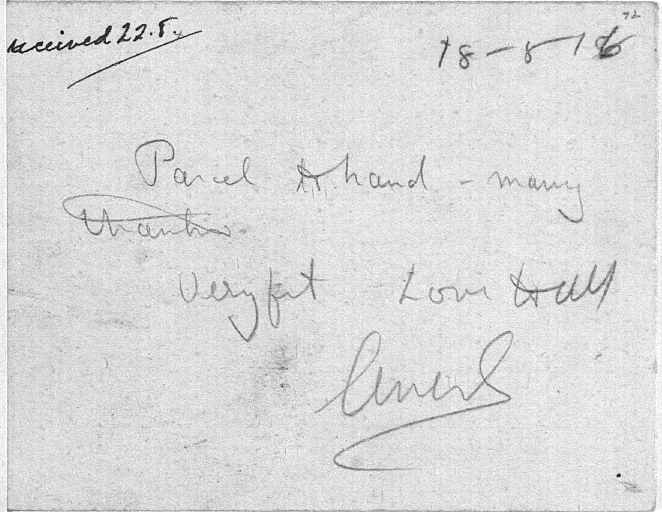 received 22.8.
72
18-8-16
Parcel to hand - many
thanks
Very fit Love to all